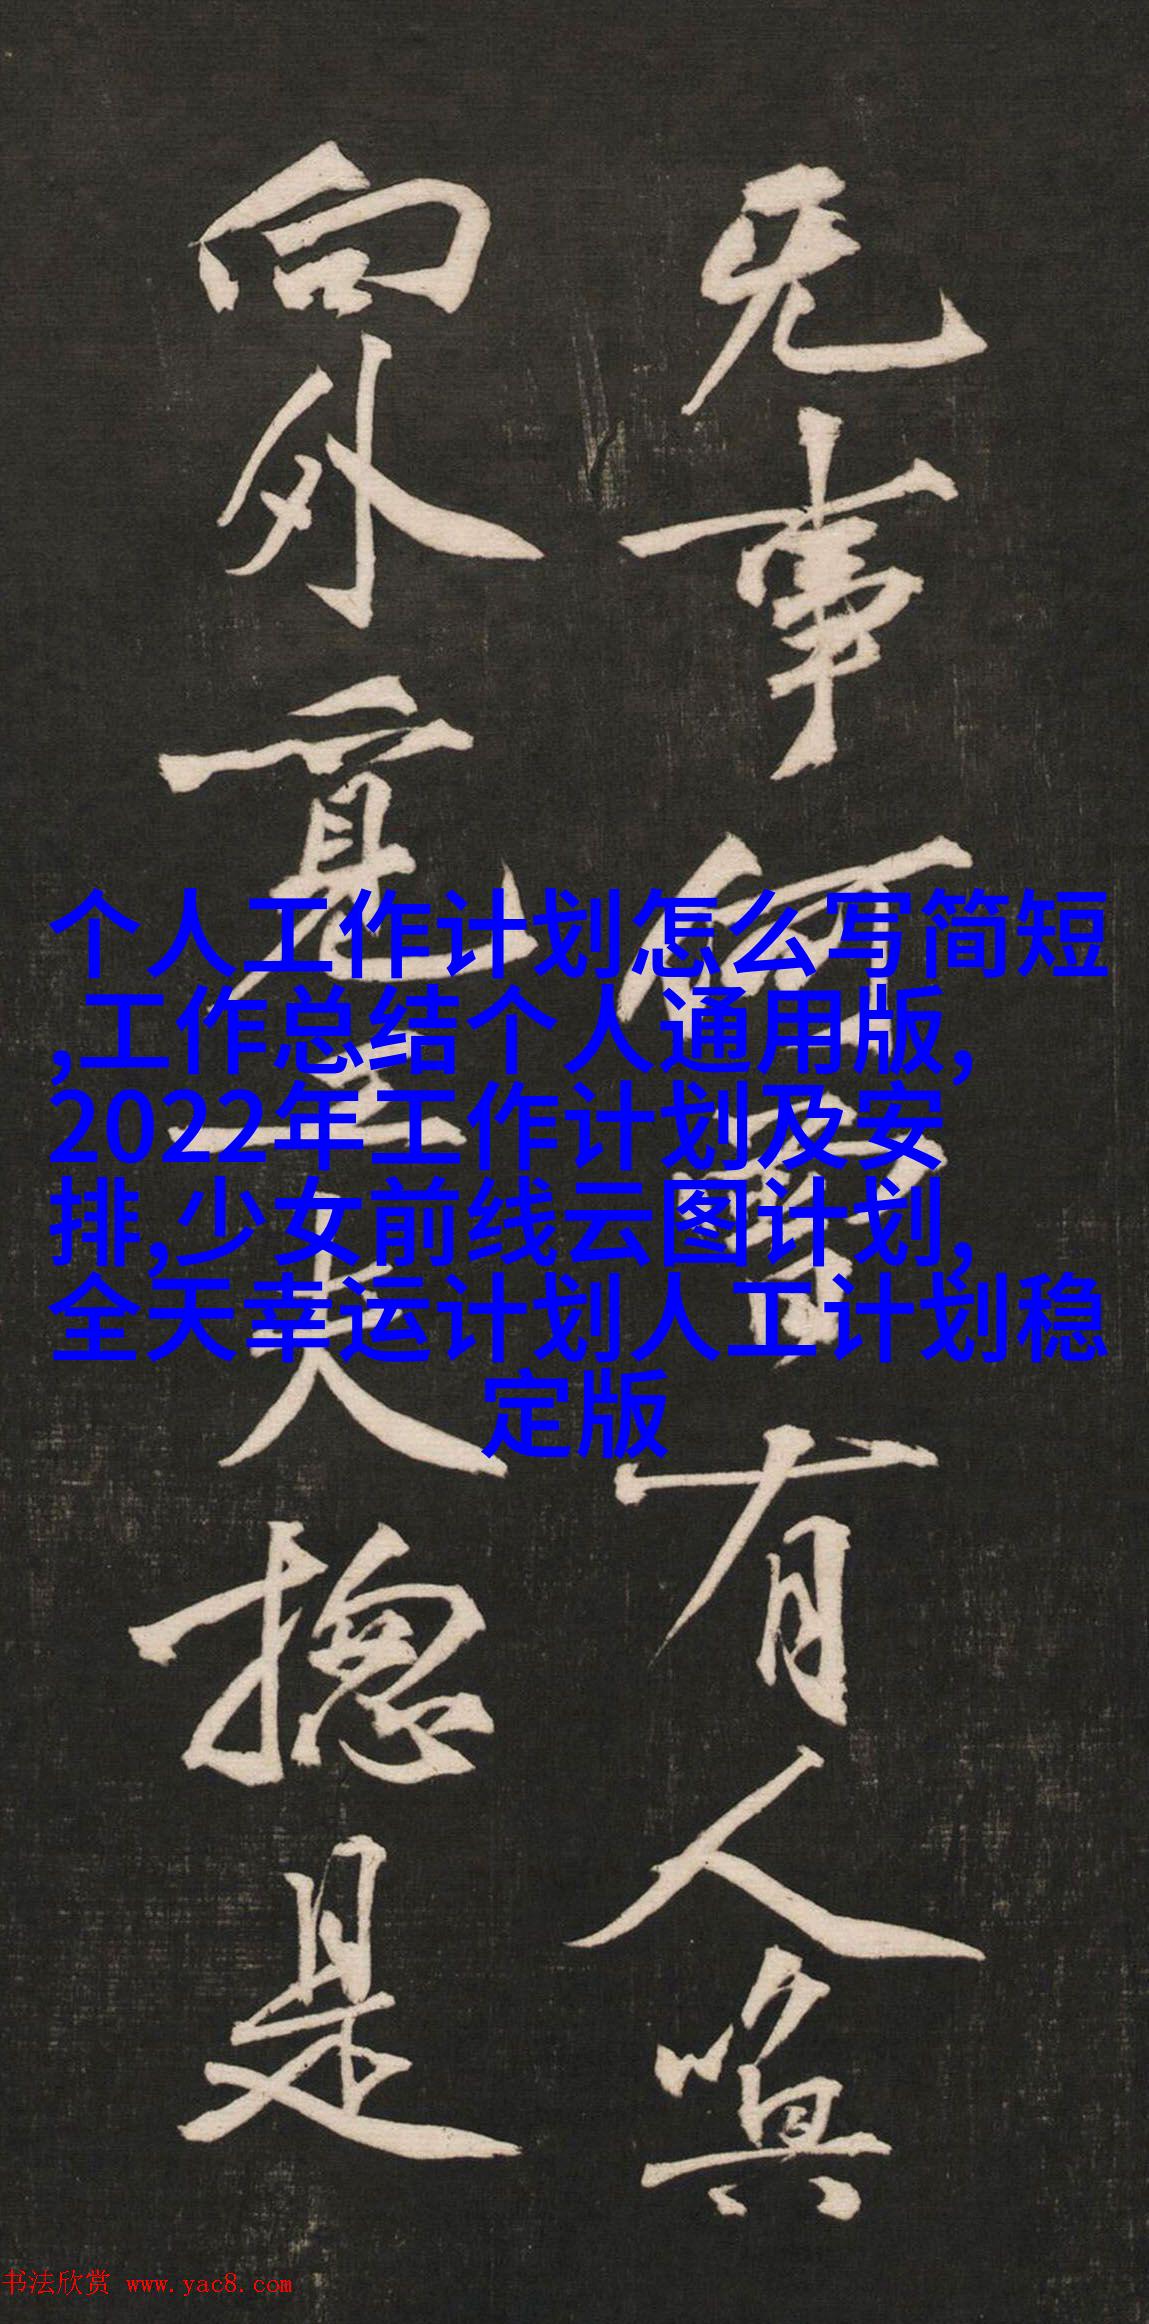 无事何有人喚
向外工夫摠是
个人工作计划怎么写简短
,工作总结个人通用版,
2022年工作计划及安
排,少女前线云图计划,
全天幸运计划人工计划稳
定版
书法欣赏 www.yac8.com